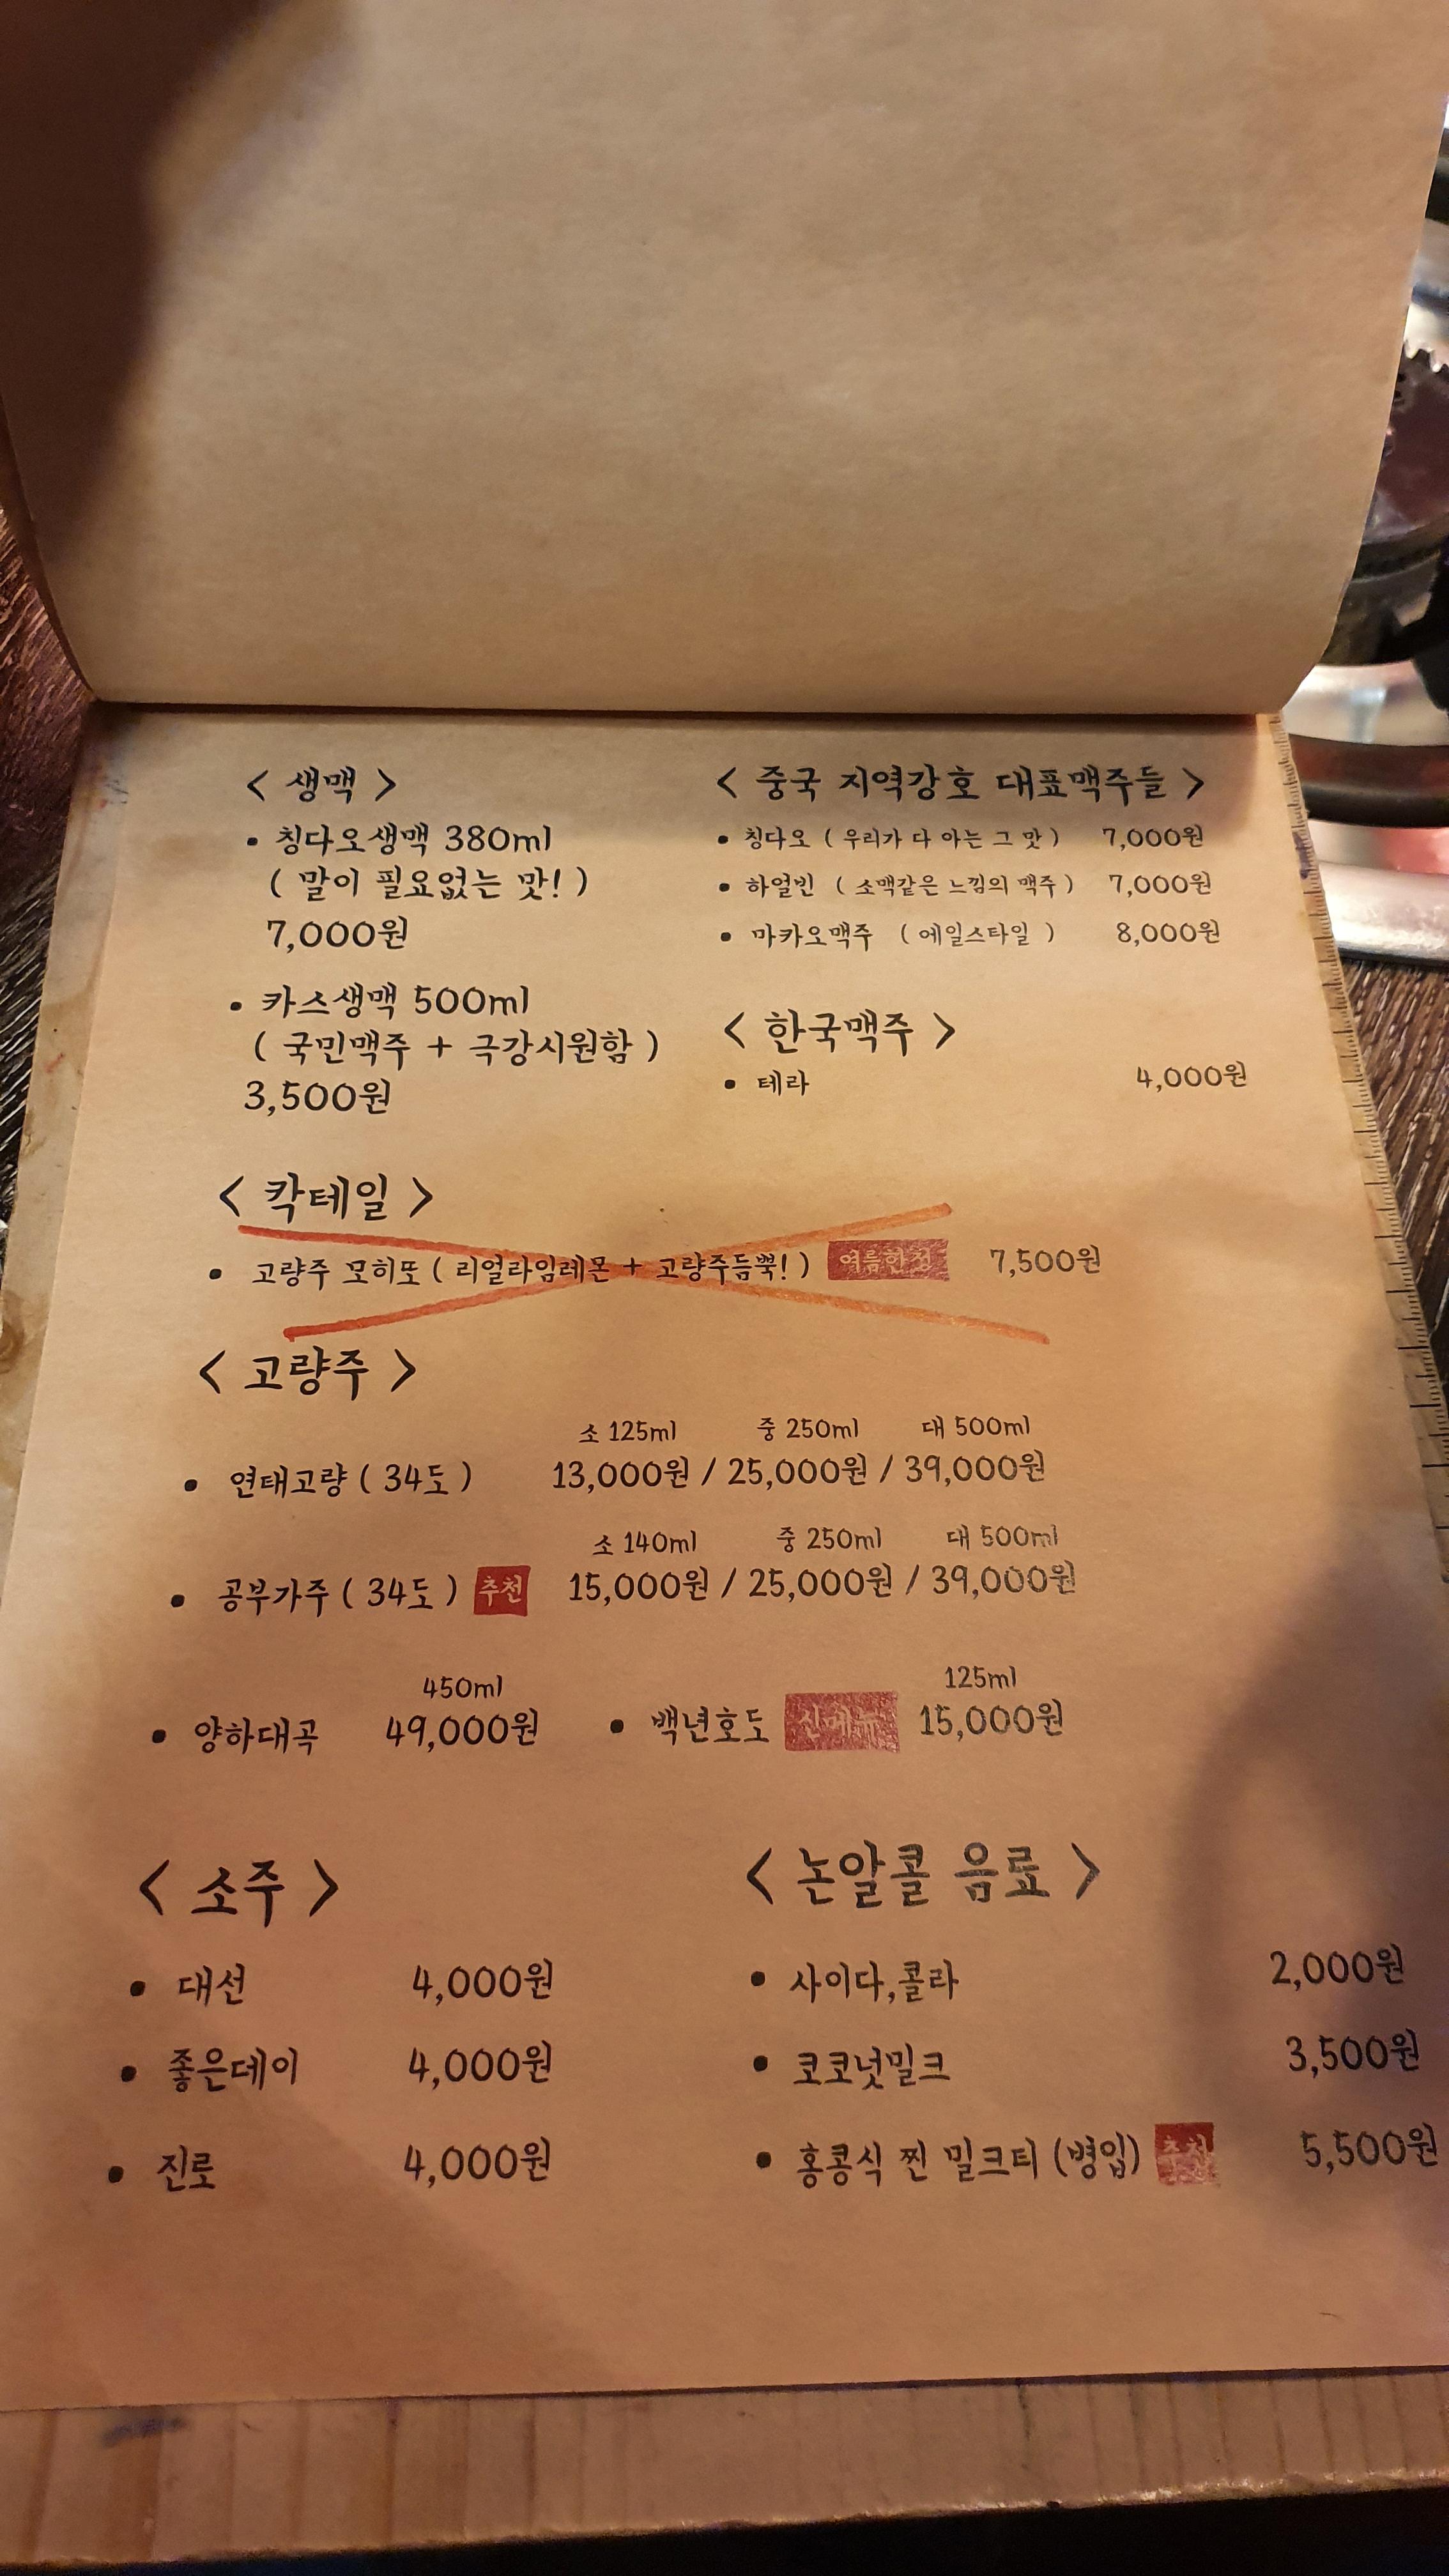 < 생맥 >
• 칭다오생맥 380ml
( 말이 필요없는 맛! )
7,000원
• 카스생맥 500ml
( 국민맥주 + 극강시원함 )
3,500원
< 중국 지역강호 대표맥주들 >
• 칭다오 ( 우리가 다 아는 그 맛 ) 7,000원
• 하얼빈 ( 소맥같은 느낌의 맥주 ) 7,000원
• 마카오맥주 ( 에일스타일 ) 8,000원
< 한국맥주 >
• 테라 4,000원
< 칵테일 >
• 고량주 모히또 ( 리얼라임레몬 + 고량주듬뿍! ) 여름한정 7,500원
< 고량주 >
소 125ml 중 250ml 대 500ml
• 연태고량 ( 34도 ) 13,000원 / 25,000원 / 39,000원
소 140ml 중 250ml 대 500ml
• 공부가주 ( 34도 ) 추천 15,000원 / 25,000원 / 39,000원
450ml
• 양하대곡 49,000원
125ml
• 백년호도 신메뉴 15,000원
< 소주 >
• 대선 4,000원
• 좋은데이 4,000원
• 진로 4,000원
< 논알콜 음료 >
• 사이다,콜라 2,000원
• 코코넛밀크 3,500원
• 홍콩식 찐 밀크티 (병입) 추천 5,500원